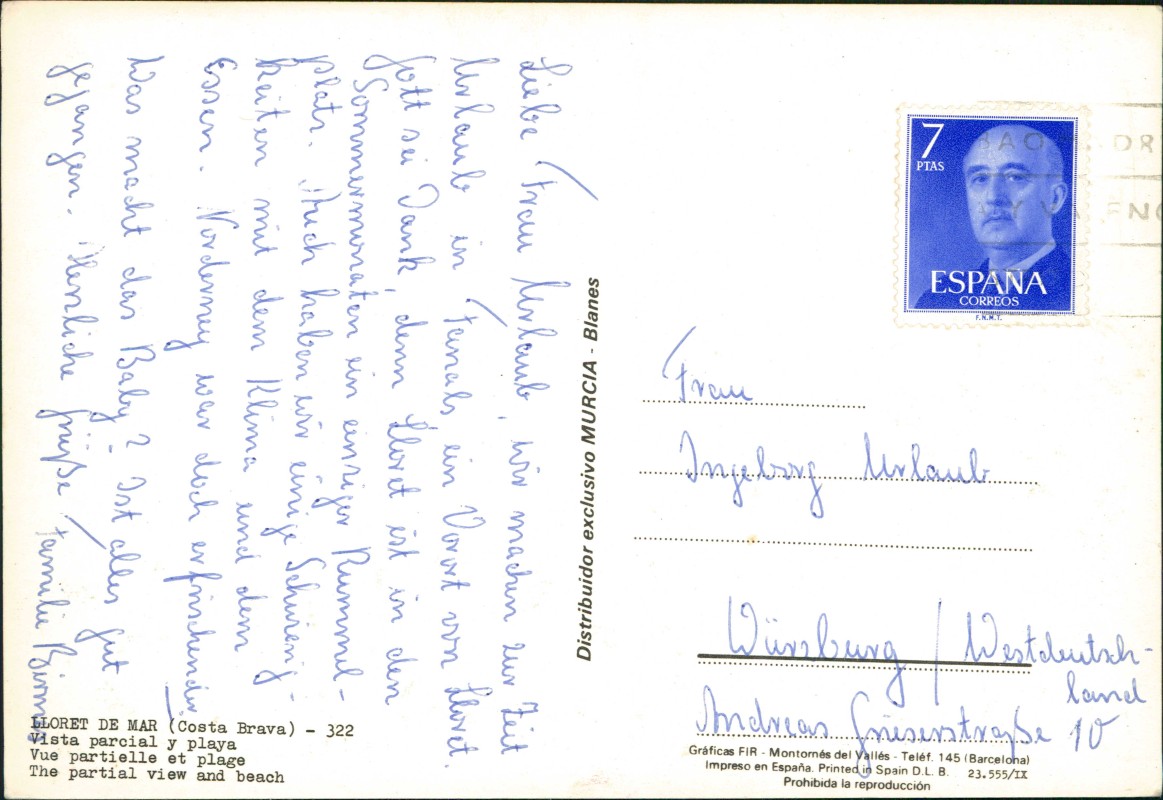 Liebe Frau Urlaub, wir machen zur Zeit
Urlaub in Fanals, ein Vorort von Lloret.
Gott sei Dank, denn Lloret ist in den
Sommermonaten ein einziger Rummel-
platz. Auch haben wir einige Schwierig-
keiten mit dem Klima und dem
Essen. Norderney war doch erfrischender.
Was macht das Baby? Ist alles gut
gegangen. Herzliche Grüße Familie
LLORET DE MAR (Costa Brava) - 322
Vista parcial y playa
Vue partielle et plage
The partial view and beach
Distribuidor exclusivo MURCIA - Blanes
7
PTAS
ESPAÑA
CORREOS
F.N.M.T.
Frau
Ingeborg Urlaub
Würzburg / Westdeutsch-
land
Andreas Grieserstraße 10
Gráficas FIR - Montornés del Vallés - Teléf. 145 (Barcelona)
Impreso en España. Printed in Spain D.L. B. 23.555/IX
Prohibida la reproducción